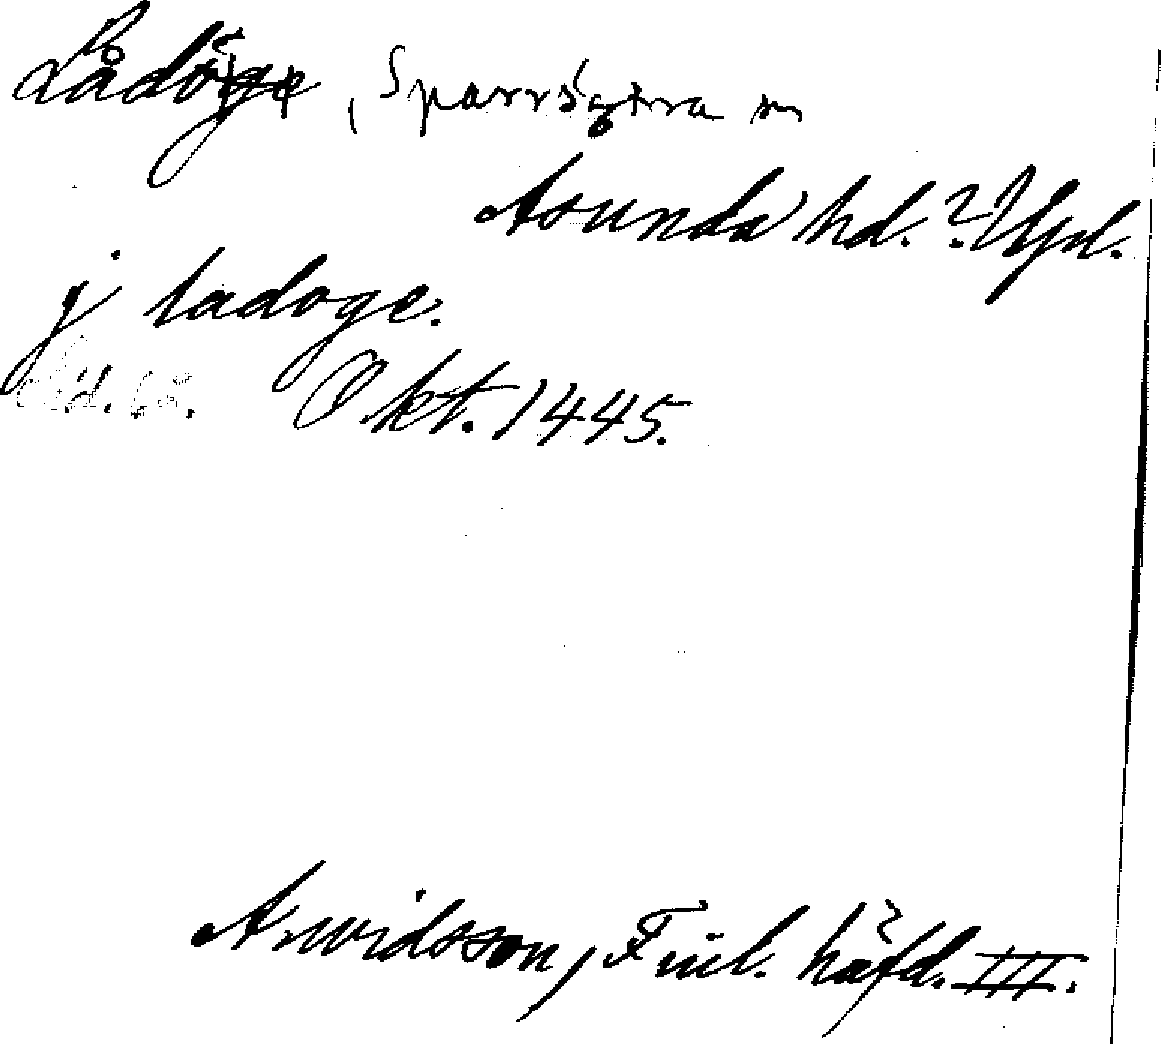 Lådöge, Sparrsätra sn
Åsunda hd. ? Upl.
j ladoge.
Okt. 1445.
Arwidsson, Finl. häfd. III.